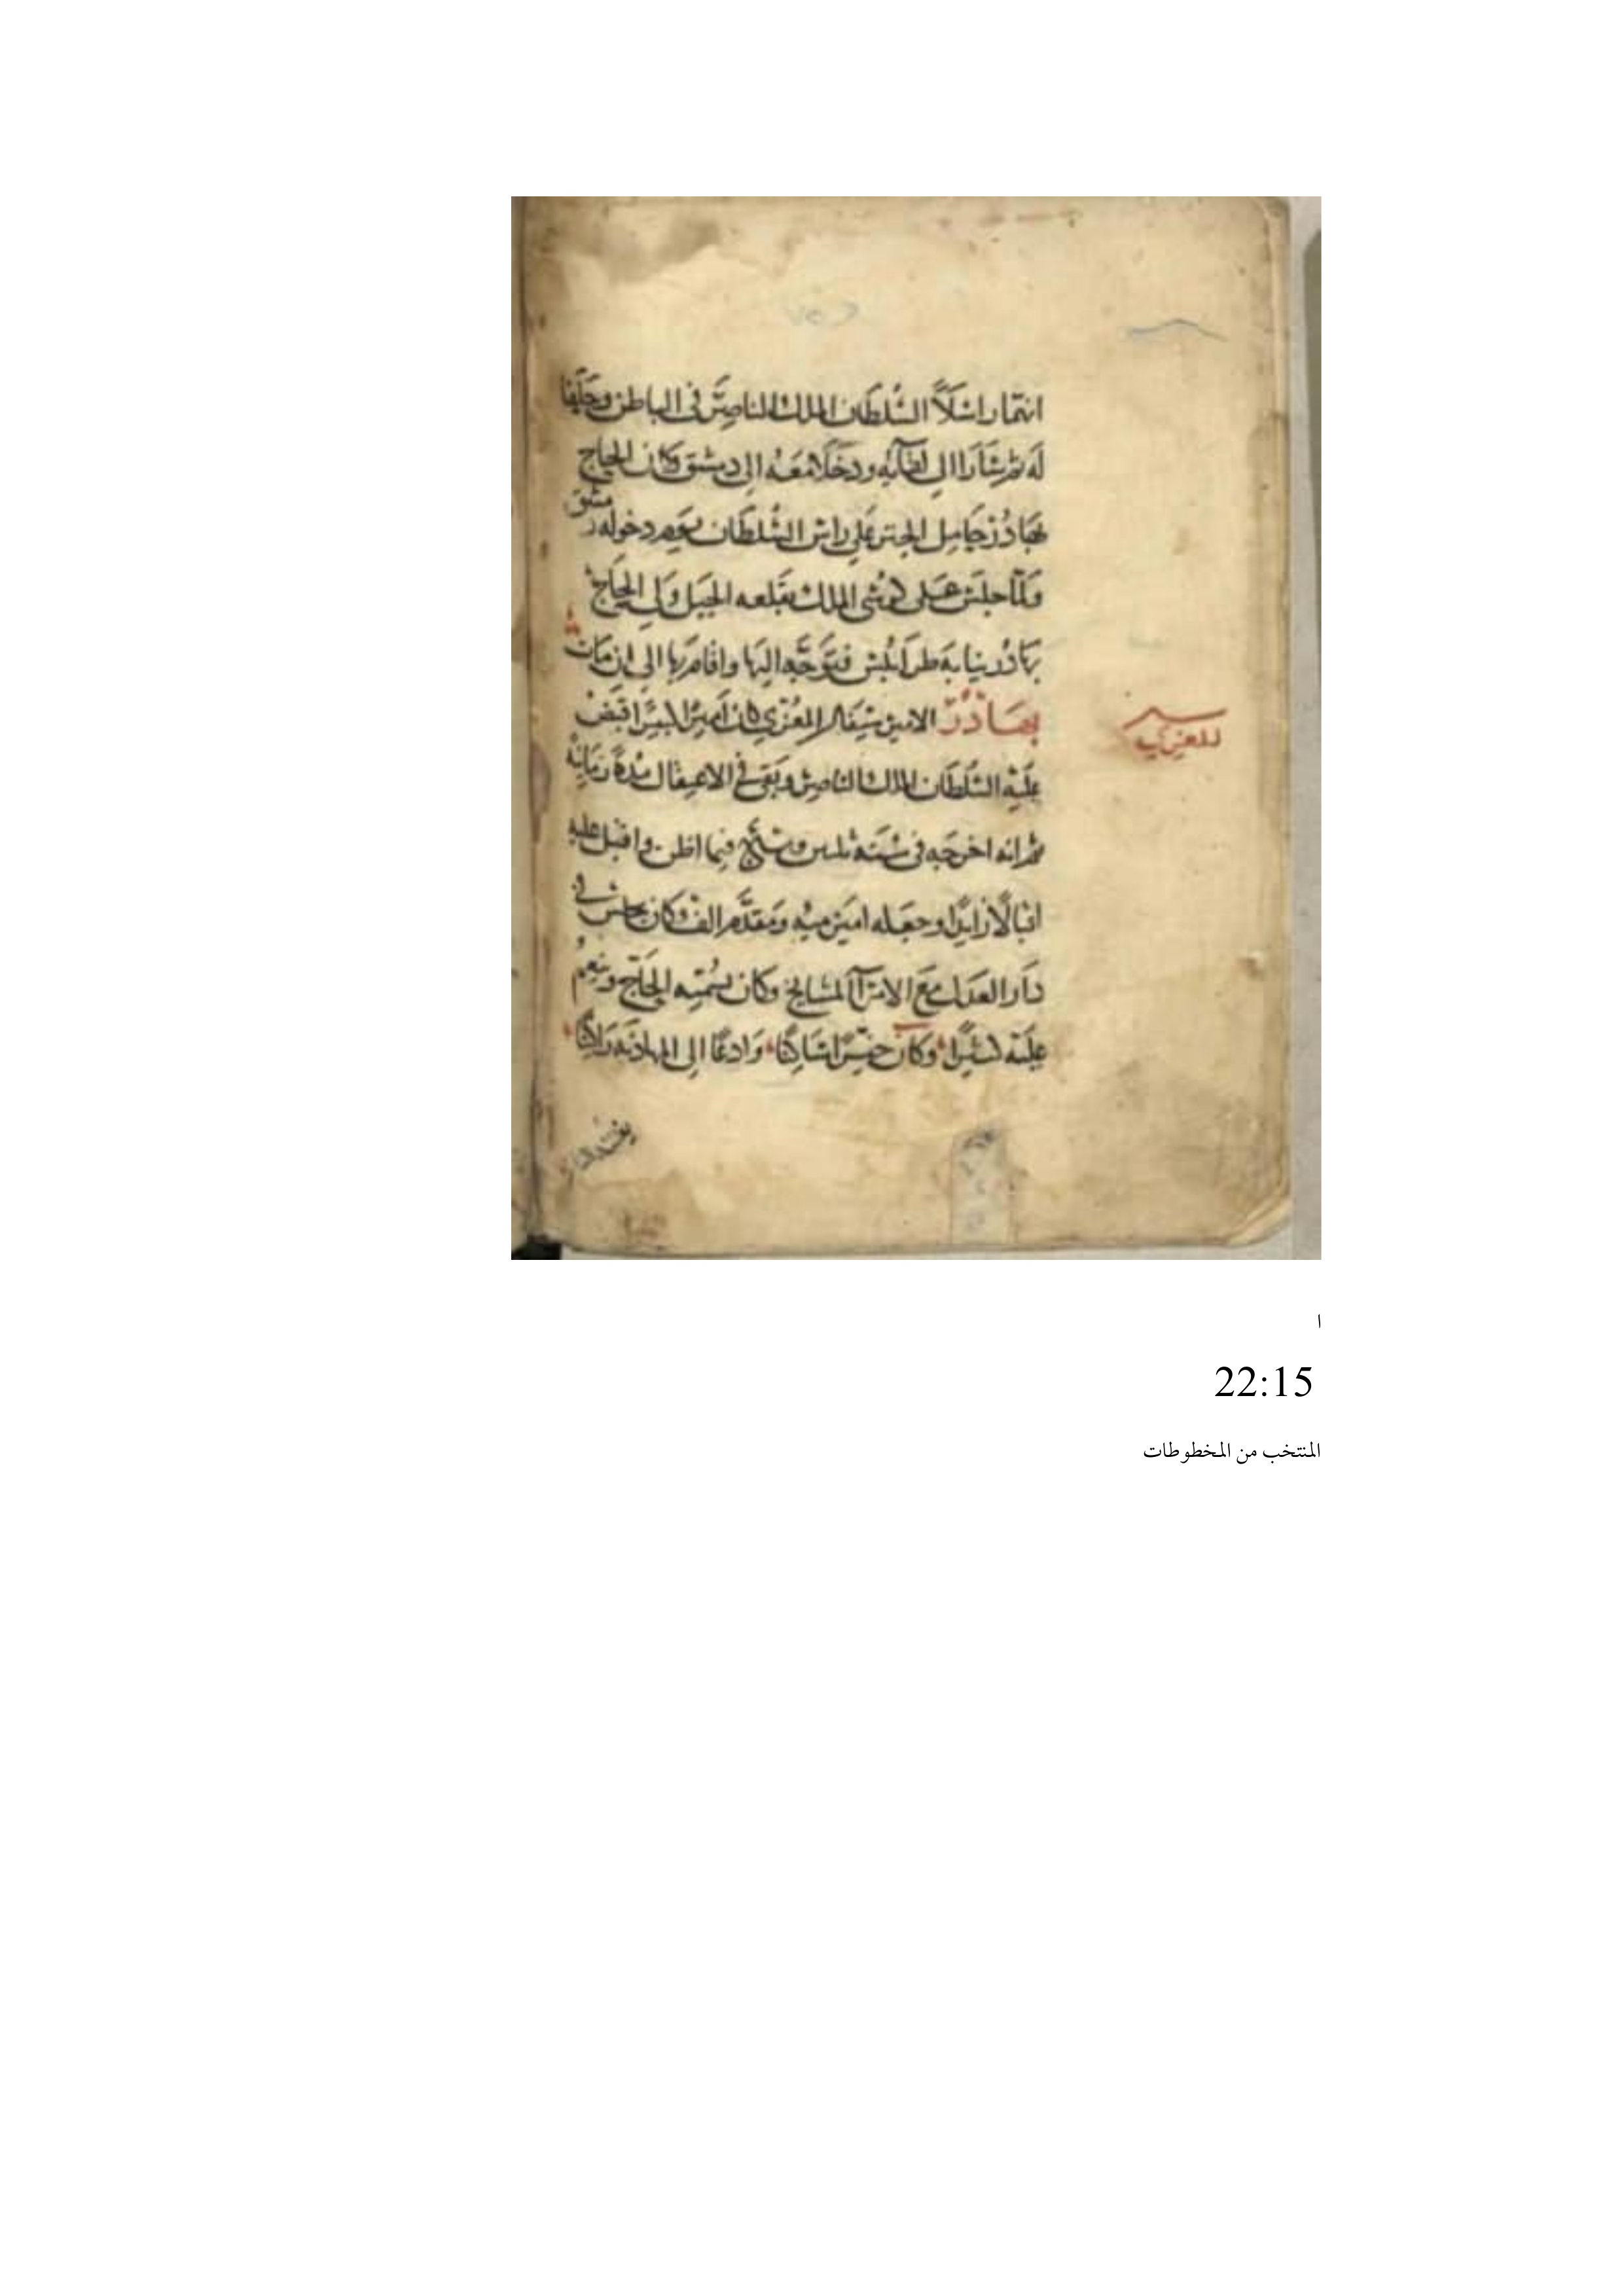 انهما راسلا السلطان الملك الناصر في الباطن وحلفا
له ثم سارا الى لقائه ودخلا معه الى دمشق وكان الحاج
بهادر حامل الجتر على راس السلطان يوم دخوله دمشق
ولما جلس على كرسي الملك بقلعه الجبل ولى الحاج
بهادر نيابة طرابلس فتوجه اليها واقام بها الى ان مات
بهادر الامير سيف الدين المعزي كان اميرا كبيرا قبض
للمعزي
عليه السلطان الملك الناصر وبقي في الاعتقال مدة زمانية
ثم انه اخرجه في سنه ثلثين وسبع فيما اظن واقبل عليه
اقبالا زايدا وجعله امير ميه ومقدم الف وكان يجلس في
دار العدل مع الامرآ المشايخ وكان يسميه الحاج وينعم
عليه كثيرا وكان خيرا ساكنا وادعا الى المهادنة راكنا
ا
22:15
المنتخب من المخطوطات